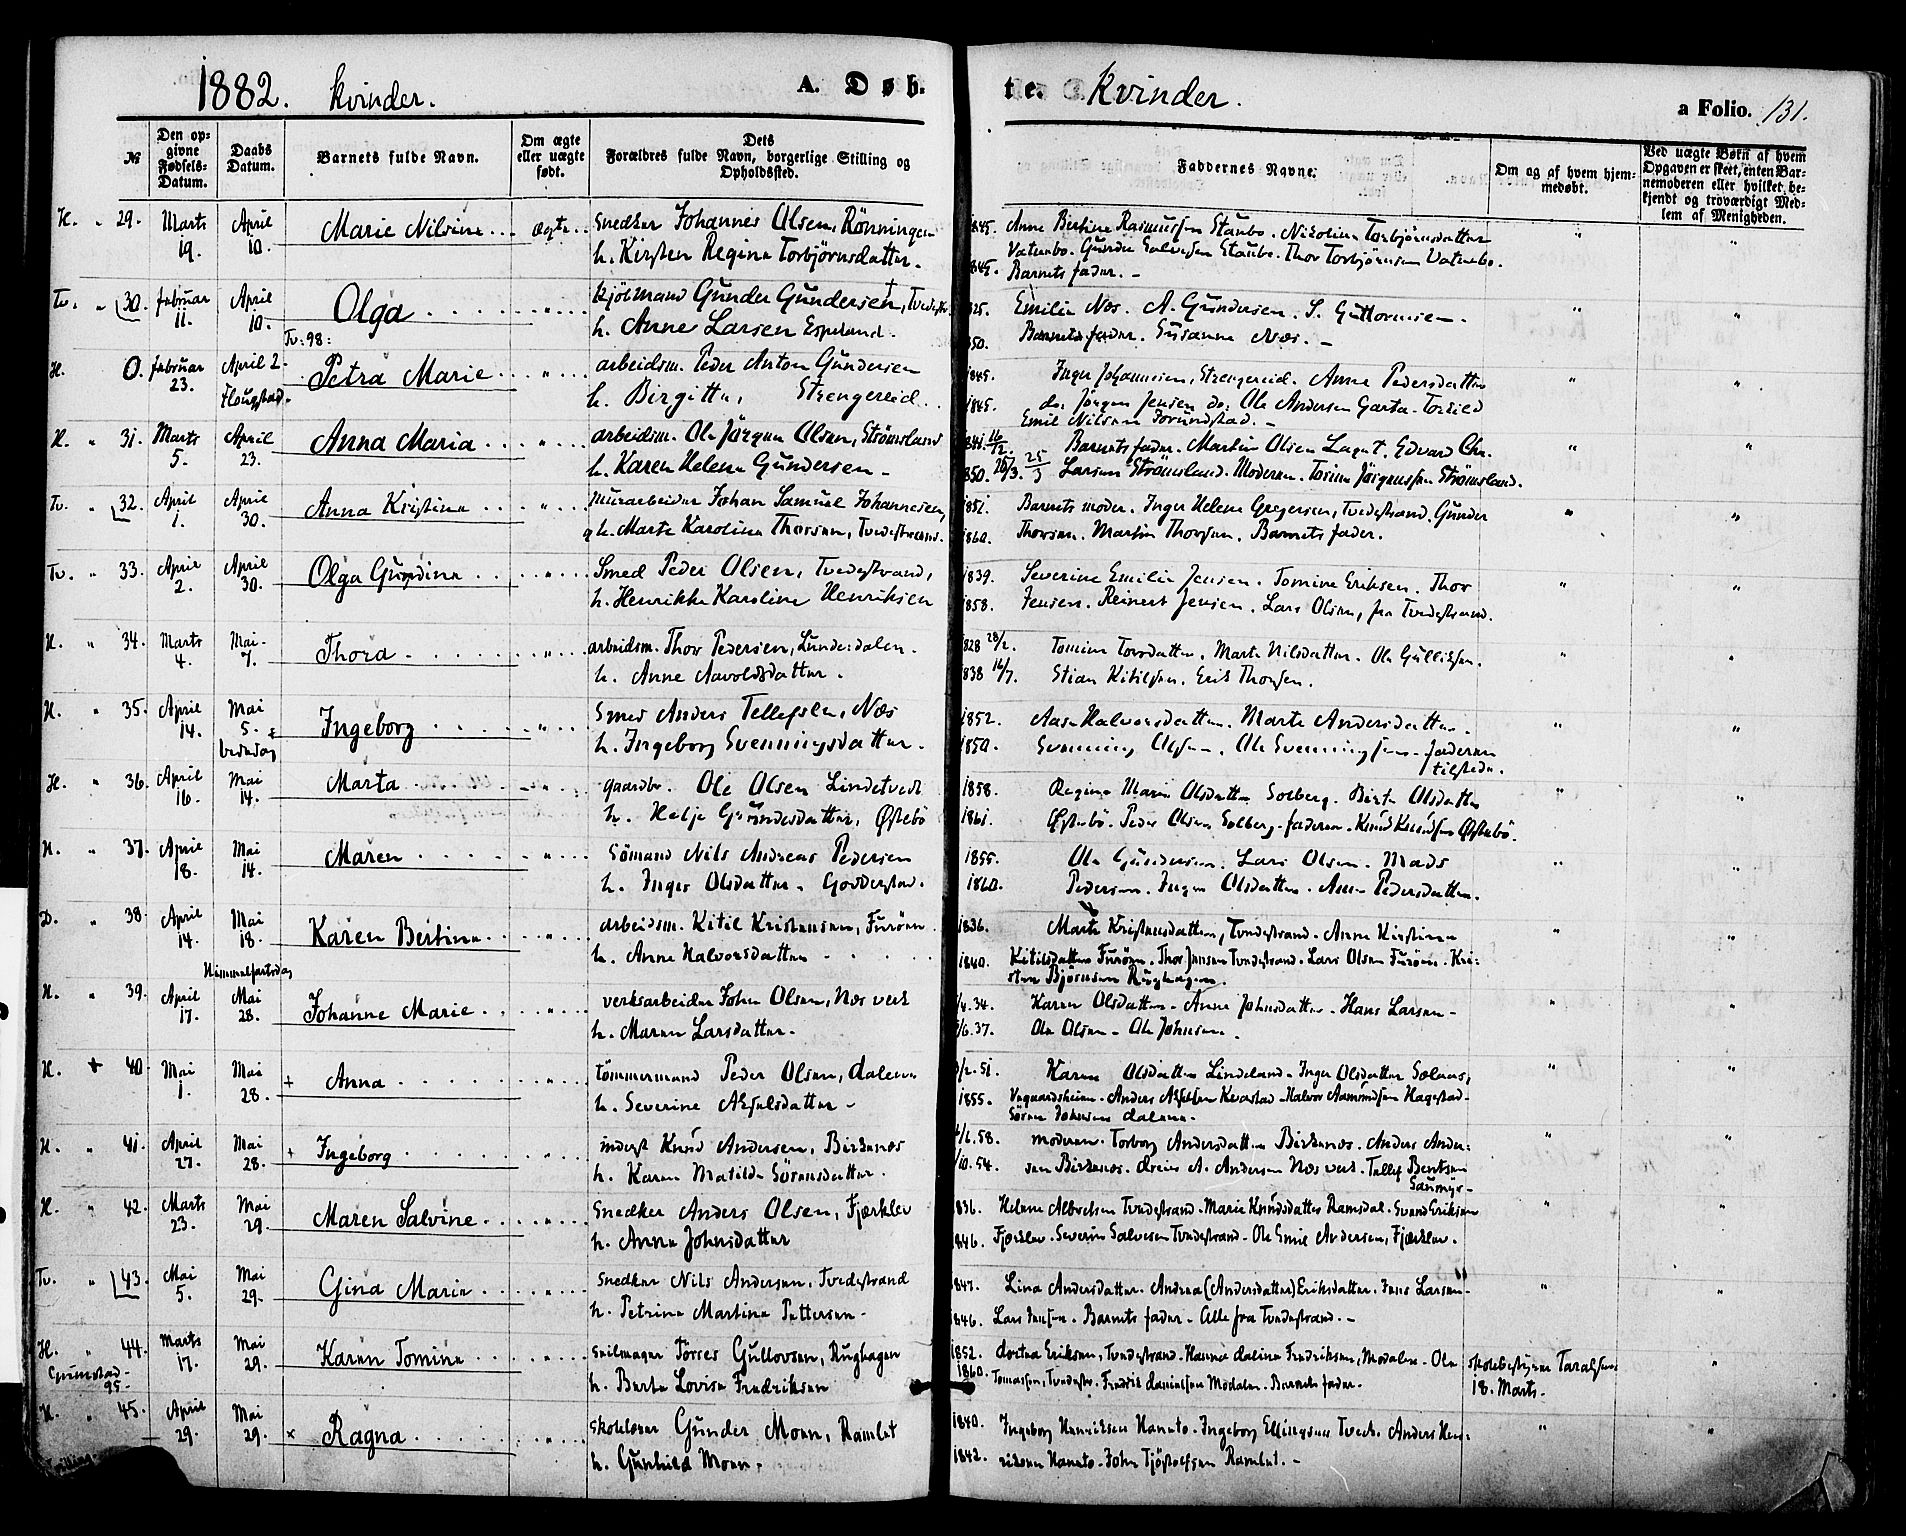 1882. Kvinder. A. Døb- te. Kvinder. a Folio. 131.
№ Den opgivne Fødsels-Datum. Daabs Datum. Barnets fulde Navn. Om ægte eller uægte født. Dets Forældres fulde Navn, borgerlige Stilling og Opholdssted. Faddernes Navne. Om og af hvem hjemmedøbt. Ved uægte Børn af hvem Opgaven er skeet, enten Barnemoderen eller hvilket bekjendt og troværdigt Medlem af Menigheden.
H. " 29. Marts 19. April 10. Marie Nilsine ... Ægte ... Snedker Johannes Olsen, Rönningen
h. Kirsten Regine Torbjörnsdatter.
1845. Anne Bertine Rasmussen Staubo. Nikoline Torbjörnsdatter
Vatnebo. Gunder Salvesen Staubo. Thor Torbjörnsen Vatnebo.
1845. Barnets fader. -
Tv. " 30. februar 11. April 10. Olga .... " ... Kjölmand Gunder Gundersen †, Tvedestr.
Tv: 98: h. Anne Larsen Espeland.
825. Emilie Næs. A. Gundersen. S. Guttormsen.
850. Barnets fader. Susanne Næs. -
H. 0. februar 23. April 2. Flougstad. Petra Marie ... " ... arbeidsm. Peder Anton Gundersen
h. Birgitte, Strengereid.
1845. Inger Johannesen, Strengereid. Anne Pedersdatter
1845. do. Jörgen Jensen do. Ole Andersen Garta. Torkild
Emil Nilsen
H. " 31. Marts 5. April 23. Anna Maria ... " ... arbeidsm. Ole Jörgen Olsen, Strömsland
h. Karen Helene Gundersen -
841. 16/2. Barnets fader. Martin Olsen Laget. Edvard Chr.
850. 26/3. 25/3 Larsen Strömsland. Moderen. Torine Jörgensen Strömsland.
Tv. " 32. April 1. April 30. Anna Kristine ... " ... Murarbeider Johan Samuel Johannesen,
h. Marte Karoline Thorsen, Tvedestrand.
1851. Barnets moder. Inger Helene Gregersen, Tvedestrand. Gunder
1860. Thorsen. Martin Thorsen. Barnets fader.
Tv. " 33. April 2. April 30. Olga Gundine ... " ... Smed Peder Olsen, Tvedestrand,
h. Henrikke Karoline Henriksen
1839. Severine Emilie Jensen. Tomine Eriksen. Thor
1858. Jensen. Reinert Jensen. Lars Olsen, fra Tvedestrand.
H. " 34. Marts 4. Mai 7. Thora .... " ... arbeidsm. Thor Pedersen, Lundersdalen.
h. Anne Aavoldsdatter.
1828 28/2. Tomine Torsdatter. Marte Nilsdatter. Ole Gulliksen.
1838 16/7. Stian Kitilsen. Erik Thorsen.
H. " 35. April 14. Mai 5. Bededag Ingeborg .... " ... Smed Anders Tellefsen, Næs
h. Ingeborg Svenningsdatter.
1852. Aase Halvorsdatter. Marte Andersdatter.
1850. Svenning Olsen. Ole Svenningsen. faderen
tilstede.
H. " 36. April 16. Mai 14. Marta ... " ... gaardbr. Ole Olsen Lindtvedt
h. Helje Gundersdatter, Østebö
1858. Regine Marie Olsdatter Solberg. Birte Olsdatter
1861. Østebö. Peder Olsen Solberg. faderen. Knud Knudsen Østebö.
H. " 37. April 18. Mai 14. Maren .... " ... Sömand Nils Andreas Pedersen
h. Inger Olsdatter. Goderstad.
1855. Ole Gundersen. Lars Olsen. Mads
1860. Pedersen. Inger Olsdatter. Anne Pedersdatter.
D. " 38. April 14. Mai 18. Himmelfartsdag Karen Bertine ... " ... arbeidsm. Kitil Kristensen, Furöen.
h. Anne Halvorsdatter
1836. Marte Kristensdatter, Tvedestrand. Anne Kirstine
1840. Kitilsdatter Furöen. Thor Jensen Tvedestrand. Lars Olsen Furöen. Kri-
sten Björnsen Rughagen.
H. " 39. April 17. Mai 28. Johanne Marie ... " ... verksarbeider John Olsen, Næs verk
h. Maren Larsdatter.
/4.34. Karen Olsdatter. Anne Johnsdatter. Hans Larsen.
/6.37. Ole Olsen. Ole Johnsen.
H. + 40. Mai 1. Mai 28. + Anna .... " ... tömmermand Peder Olsen, dalene
h. Severine Akselsdatter -
/2.51. Karen Olsdatter Lindeland. Inger Olsdatter Solaas,
1855. Vegaardsheien. Anders Akselsen Kvastad. Halvor Aasmundsen Hagestad.
Sören Johnsen dalene.
H. " 41. April 27. Mai 28. + Ingeborg .... " ... inderst Knud Andersen, Birkenæs
h. Karen Matilde Sörensdatter.
/6.58. moderen. Torborg Andersdatter Birkenæs. Anders Ander-
/10.54. sen Birkenæs. dreier A. Andersen Næs verk. Tellef Bentsen
Saumyr.
H. " 42. Marts 23. Mai 29. Maren Salvine ... " ... Snedker Anders Olsen, Fjærklev
h. Anne Johnsdatter
1836. Helene Albretsen Tvedestrand. Marie Knudsdatter Ramsdal. Svend Eriksen
1846. Fjærklev. Severin Salvesen Tvedestrand. Ole Emil Andersen, Fjærklev.
Tv. " 43. Mai 5. Mai 29. Gina Marie ... " ... Snedker Nils Andersen, Tvedestrand
h. Petrine Martine Pettersen.
1847. Lina Andersdatter. Andrea (Andersdatter) Eriksdatter. Jens Larsen.
1846. Lars Jensen. Barnets fader. Alle fra Tvedestrand. -
H. " 44. Marts 17. Mai 29. Karen Tomine ... " ... Seilmager Törres Gullovsen, Rughagen
Grimstad 95. h. Berte Lovise Fredriksen
1852. Dortea Eriksen, Tvedestrand. Hanna Daline Fredriksen, Modalen. Ole skolebestyrer Taraldsen
1860. Tomassen, Tvedestr. Fredrik Danielsen Modalen. Barnets fader. 18. Marts.
H. " 45. April 29. Mai 29. × Ragna .... " ... Skolelærer Gunder Moen, Ramlet
h. Gunhild Moen.
1840. Ingeborg Henriksen Hanto. Ingeborg Ellingsen Tvedt. Anders Hen-
1842. riksen Hanto. John Tjöstolfsen Ramlet. -